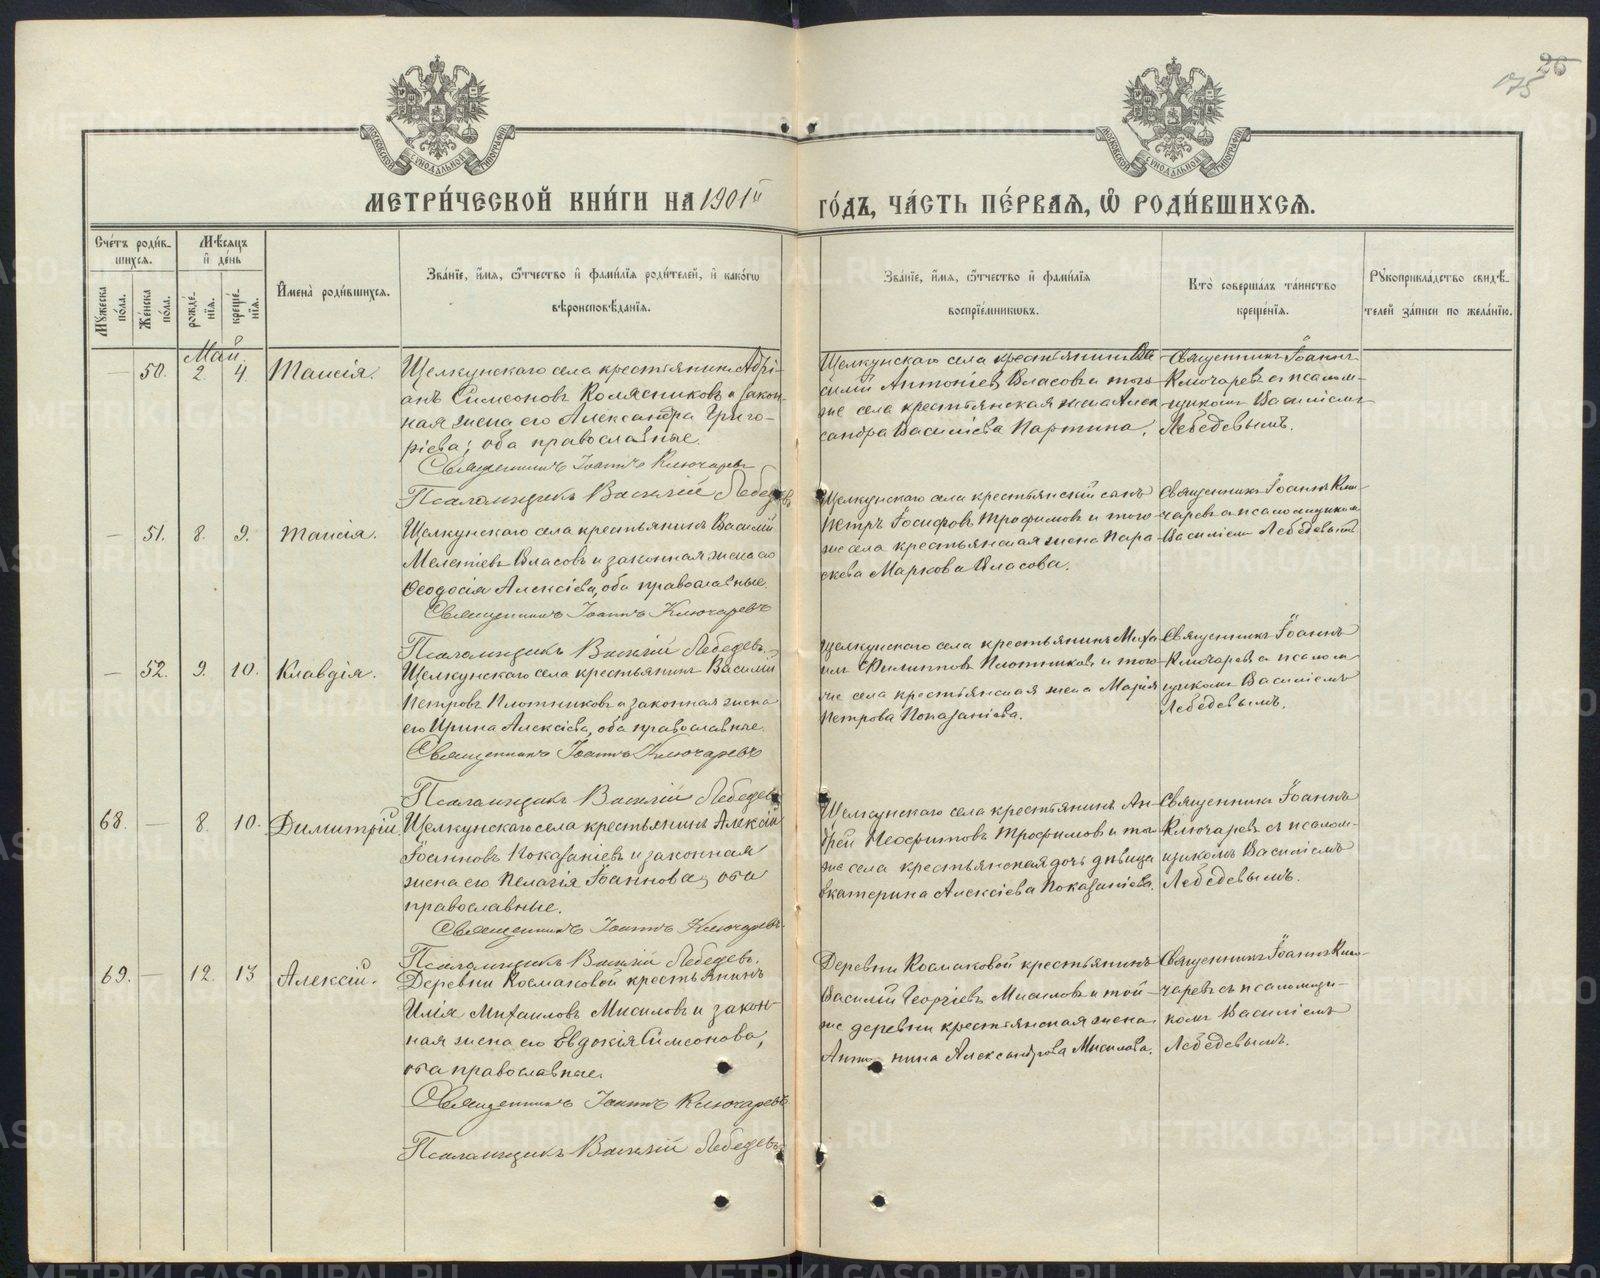 26
175
МОСКОВСКОЙ СѴНОДАЛЬНОЙ ТИПОГРАФІИ
МОСКОВСКОЙ СѴНОДАЛЬНОЙ ТИПОГРАФІИ
МЕТРИ́ЧЕСКОЙ КНИ́ГИ НА 1901й
ГО́ДЪ, ЧА́СТЬ ПЕ́РВАЯ, Ѽ РОДИ́ВШИХСЯ.
Сче́тъ роди́в-
шихся.
Мѣ́сяцъ
и҆ де́нь
Мꙋ́жеска по́ла.
Же́нска по́ла.
рожде́-
нїя.
креще́-
нїя.
И҆мена̀ роди́вшихся.
Зва́нїе, и҆́мя, ѻ҆́тчество и҆ фамѝлїя роди́телей, и҆ како́гѡ
вѣроисповѣ́данїя.
Зва́нїе, и҆́мя, ѻ҆́тчество и҆ фамѝлїя
воспрїе́мникѡвъ.
Кто̀ соверша́лъ та́инство
креще́нїя.
Рꙋкоприкла́дство свидѣ́-
телей за́писи по жела́нїю.
Май.
— 50. 2. 4. Таисія.
Щелкунскаго села крестьянинъ Адрі-
анъ Симеоновъ Колясниковъ и закон-
ная жена его Александра Григо-
ріева; оба православные.
Священникъ Іоаннъ Ключаревъ
Псаломщикъ Василій Лебедевъ
Щелкунскаго села крестьянинъ Ва-
силій Антоніевъ Власовъ и того-
же села крестьянская жена Алек-
сандра Василіева Партина.
Священникъ Іоаннъ
Ключаревъ съ псалом-
щикомъ Василіемъ
Лебедевымъ.
— 51. 8. 9. Таисія.
Щелкунскаго села крестьянинъ Василій
Мелетіевъ Власовъ и законная жена его
Ѳеодосія Алексіева, оба православные.
Священникъ Іоаннъ Ключаревъ
Псаломщикъ Василій Лебедевъ.
Щелкунскаго села крестьянскій сынъ
Петръ Іосифовъ Трофимовъ и того-
же села крестьянская жена Пара-
скева Маркова Власова.
Священникъ Іоаннъ Клю-
чаревъ съ псаломщикомъ
Василіемъ Лебедевымъ
— 52. 9. 10. Клавдія.
Щелкунскаго села крестьянинъ Василій
Петровъ Плотниковъ и законная жена
его Ирина Алексіева, оба православные.
Священникъ Іоаннъ Ключаревъ
Псаломщикъ Василій Лебедевъ
Щелкунскаго села крестьянинъ Миха-
илъ Филипповъ Плотниковъ и того-
же села крестьянская жена Марія
Петрова Показаніева.
Священникъ Іоаннъ
Ключаревъ съ псалом-
щикомъ Василіемъ
Лебедевымъ.
68. — 8. 10. Димитрій.
Щелкунскаго села крестьянинъ Алексій
Іоанновъ Показаніевъ и законная
жена его Пелагія Іоаннова, оба
православные.
Священникъ Іоаннъ Ключаревъ.
Псаломщикъ Василій Лебедевъ.
Щелкунскаго села крестьянинъ Ан-
дрей Неофитовъ Трофимовъ и того-
же села крестьянская дочь дѣвица
Екатерина Алексіева Показаніева.
Священникъ Іоаннъ
Ключаревъ съ псалом-
щикомъ Василіемъ
Лебедевымъ.
69. — 12. 13 Алексій.
Деревни Космаковой крестьянинъ
Илія Михаиловъ Мисиловъ и закон-
ная жена его Евдокія Симеонова,
оба православные.
Священникъ Іоаннъ Ключаревъ
Псаломщикъ Василій Лебедевъ
Деревни Космаковой крестьянинъ
Василій Георгіевъ Мисиловъ и той-
же деревни крестьянская жена
Антонина Александрова Мисилова.
Священникъ Іоаннъ Клю-
чаревъ съ псаломщи-
комъ Василіемъ
Лебедевымъ.
METRIKI.GASO-URAL.RU